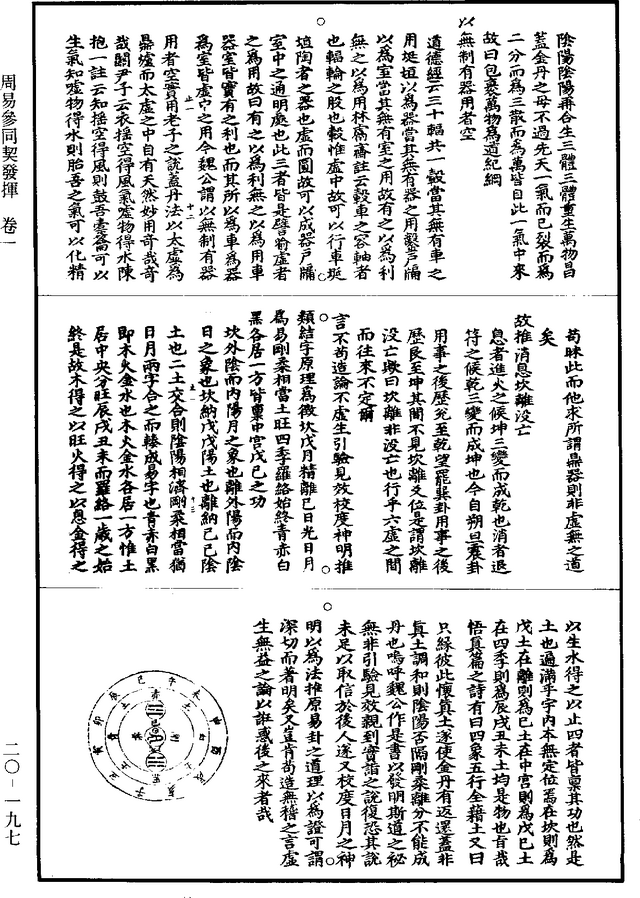 陰陽陰陽再合生三體三體重生萬物昌
蓋金丹之母不過先天一氣而已裂而為
二分而為三散而為萬皆自此一氣中來
故曰包裹萬物為道紀綱
以無制有器用者空
道德經云三十輻共一轂當其無有車之
用埏埴以為器當其無有器之用鑿戶牖
以為室當其無有室之用故有之以為利
無之以為用林鬳齋註云轂車之容軸者
也輻輪之股也轂惟虛中故可以行車埏
埴陶者之器也虛而圓故可以成器戶牖
室中之通明處也此三者皆是譬喻虛者
之為用故曰有之以為利無之以為用車
器室皆實有之利也而其所以為車為器
為室皆虛空之用今魏公謂以無制有器
用者空實用老子之說蓋丹法以太虛為
鼎爐而太虛之中自有天然妙用奇哉奇
哉關尹子云衣搖空得風氣噓物得水陳
抱一註云知搖空得風則鼓吾橐籥可以
生氣知噓物得水則胎吾之氣可以化精
苟昧此而他求所謂鼎器則非虛無之道
矣
故推消息坎離沒亡
息者進火之候坤三變而成乾也消者退
符之候乾三變而成坤也今自朔旦震卦
用事之後歷兌至乾望罷巽卦用事之後
歷艮至坤其間不見坎離爻位是謂坎離
沒亡歟曰坎離非沒亡也行乎六虛之間
而往來不定爾
言不苟造論不虛生引驗見效校度神明推
類結字原理為徵坎戊月精離己日光日月
為易剛柔相當土旺四季羅絡始終青赤白
黑各居一方皆稟中宮戊己之功
坎外陰而內陽月之象也離外陽而內陰
日之象也坎納戊戊陽土也離納己己陰
土也二土交合則陰陽相濟剛柔相當猶
日月兩字合之而輳成易字也青赤白黑
即木火金水也木火金水各居一方惟土
居中央分旺辰戌丑未而羅絡一歲之始
終是故木得之以旺火得之以息金得之
以生水得之以止四者皆稟其功也然是
土也遍滿乎宇內本無定位焉在坎則為
戊土在離則為己土在中宮則為戊己土
在四季則為辰戌丑未土均是物也旨哉
悟真篇之詩有曰四象五行全藉土又曰
只緣彼此懷真土遂使金丹有返還蓋非
真土調和則陰陽否隔剛柔離分不能成
丹也嗚呼魏公作是書以發明斯道之祕
無非引驗見效親到實詣之說復恐其說
未足以取信於後人遂又校度日月之神
明以為法推原易卦之道理以為證可謂
深切而著明矣又豈肯苟造無稽之言虛
生無益之論以誑惑後之來者哉
周易參同契發揮 卷一
二〇-一九七